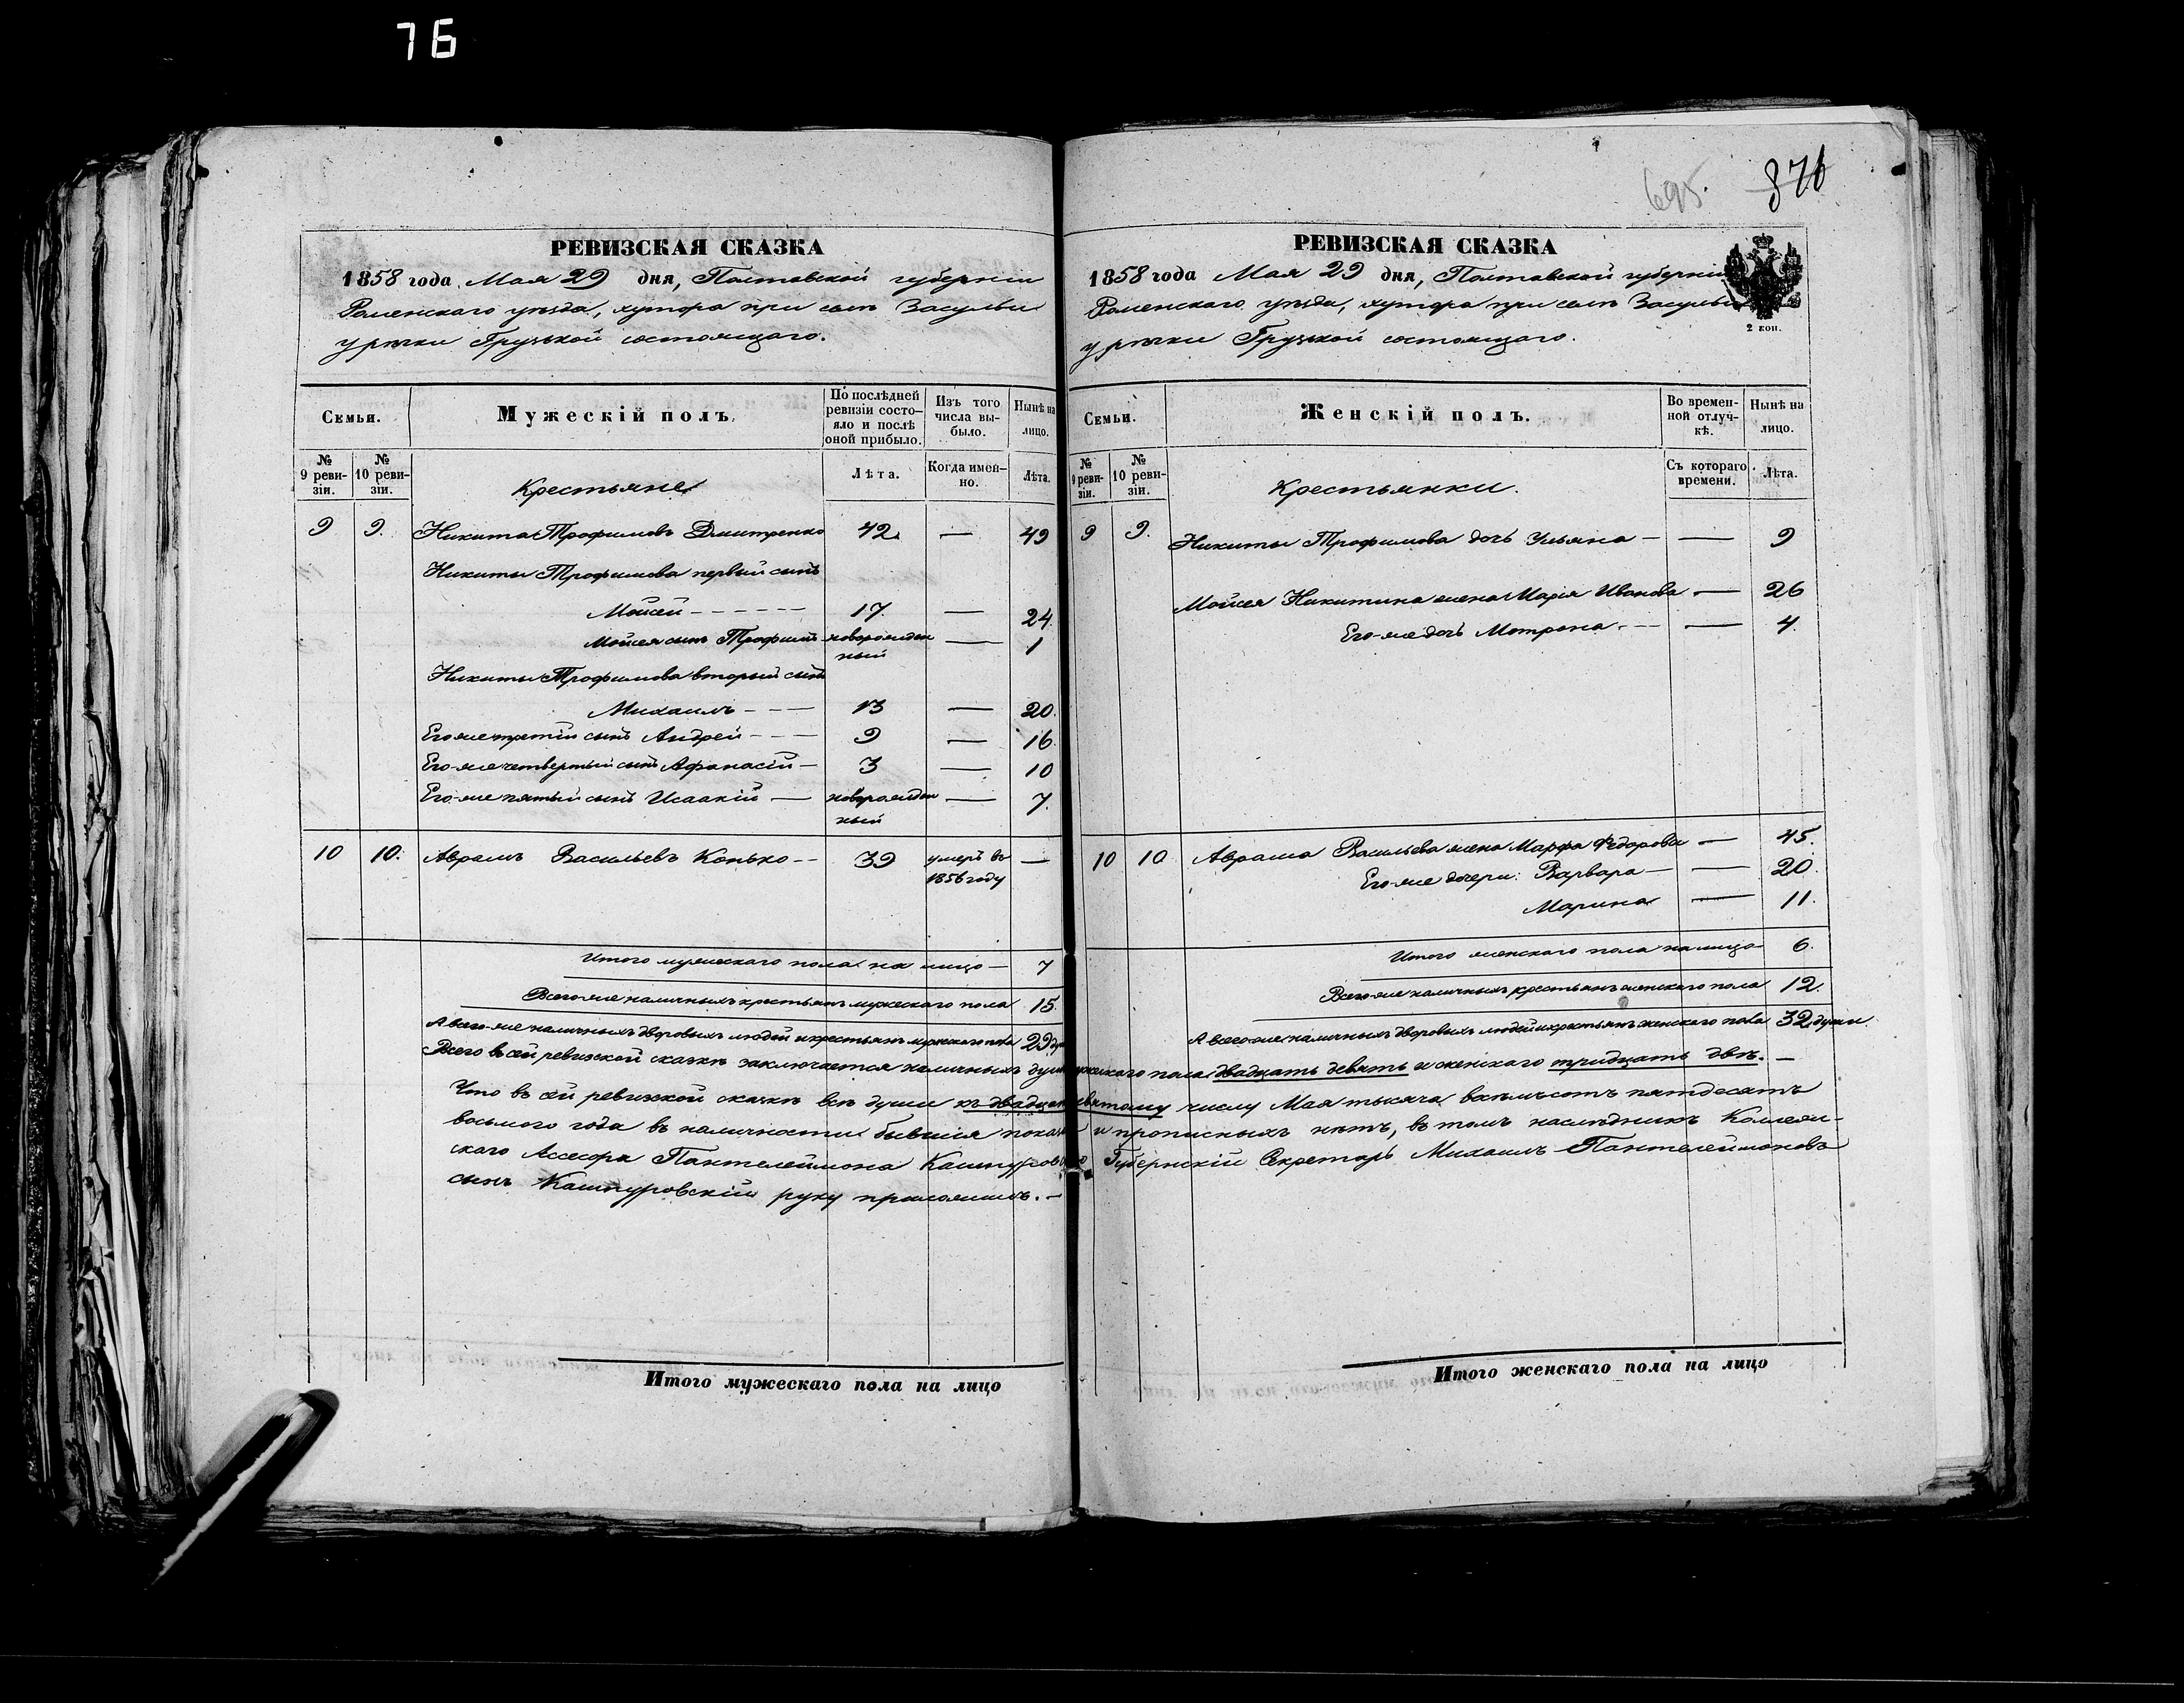 76
695.
376
РЕВИЗСКАЯ СКАЗКА
1858 года Мая 29 дня, Полтавской губернiи
Роменскаго уѣзда, хутора при селѣ Засульи
у рѣчки Грузской состоящаго.
Семьи.
Мужескiй полъ.
По послѣдней ревизiи состояло и послѣ оной прибыло.
Изъ того числа выбыло.
Нынѣ на лицо.
№ 9 ревизiи.
№ 10 ревизiи.
Крестьяне
Лѣта.
Когда именно.
Лѣта.
9 9. Никита Трофимовъ Дмитренко 42. — 49
Никиты Трофимова первый сынъ
Мойсей - - - - - - 17. — 24.
Мойсея сынъ Трофимъ новорожден — 1
ный
Никиты Трофимова вторый сынъ
Михаилъ - - — 13 — 20.
Его-же третiй сынъ Андрей - - — 9 — 16.
Его-же четвертый сынъ Афанасiй — 3 — 10
Его-же пятый сынъ Исаакiй — новорожден — 7.
ный
10 10. Аврамъ Васильевъ Конько - - 39 умеръ въ —
1856 году
Итого мужескаго пола на лицо — 7
Всего-же наличныхъ крестьянъ мужескаго пола 15.
А всего-же наличныхъ дворовыхъ людей и крестьянъ мужескаго пола 29
РЕВИЗСКАЯ СКАЗКА
1858 года Мая 29 дня, Полтавской губернiи
Роменскаго уѣзда, хутора при селѣ Засульи
у рѣчки Грузской состоящаго.
2 коп.
Семьи.
Женскiй полъ.
Во временной отлучкѣ.
Нынѣ на лицо.
№ 9 ревизiи.
№ 10 ревизiи.
Крестьянки.
Съ котораго времени.
Лѣта.
9 9. Никиты Трофимова дочь Ульяна — — 9
Мойсея Никитина жена Марiя Иванова — 26
Его-же дочь Мотрона - — — 4.
10 10 Аврама Васильева жена Марфа Федорова — 45.
Его-же дочери: Варвара — — 20.
Марина — 11.
Итого женскаго пола на лицо — 6.
Всего-же наличныхъ крестьянъ женскаго пола 12.
А всего-же наличныхъ дворовыхъ людей и крестьянъ женскаго пола 32 души.
Всего въ сей ревизской сказкѣ заключается наличныхъ душъ мужескаго пола двадцать девять и женскаго тридцать двѣ. —
Что въ сей ревизской сказкѣ всѣ души къ двадцать девятому числу Мая тысяча восемьсотъ пятдесятъ
восьмого года въ наличности бывшiя показаны и прописныхъ нѣтъ, въ томъ наслѣдникъ Коллеж-
скаго Ассесора Пантелеймона Кашпуровскаго Губернскiй Секретарь Михаилъ Пантелеймоновъ
сынъ Кашпуровскiй руку приложилъ. —
Итого мужескаго пола на лицо
Итого женскаго пола на лицо